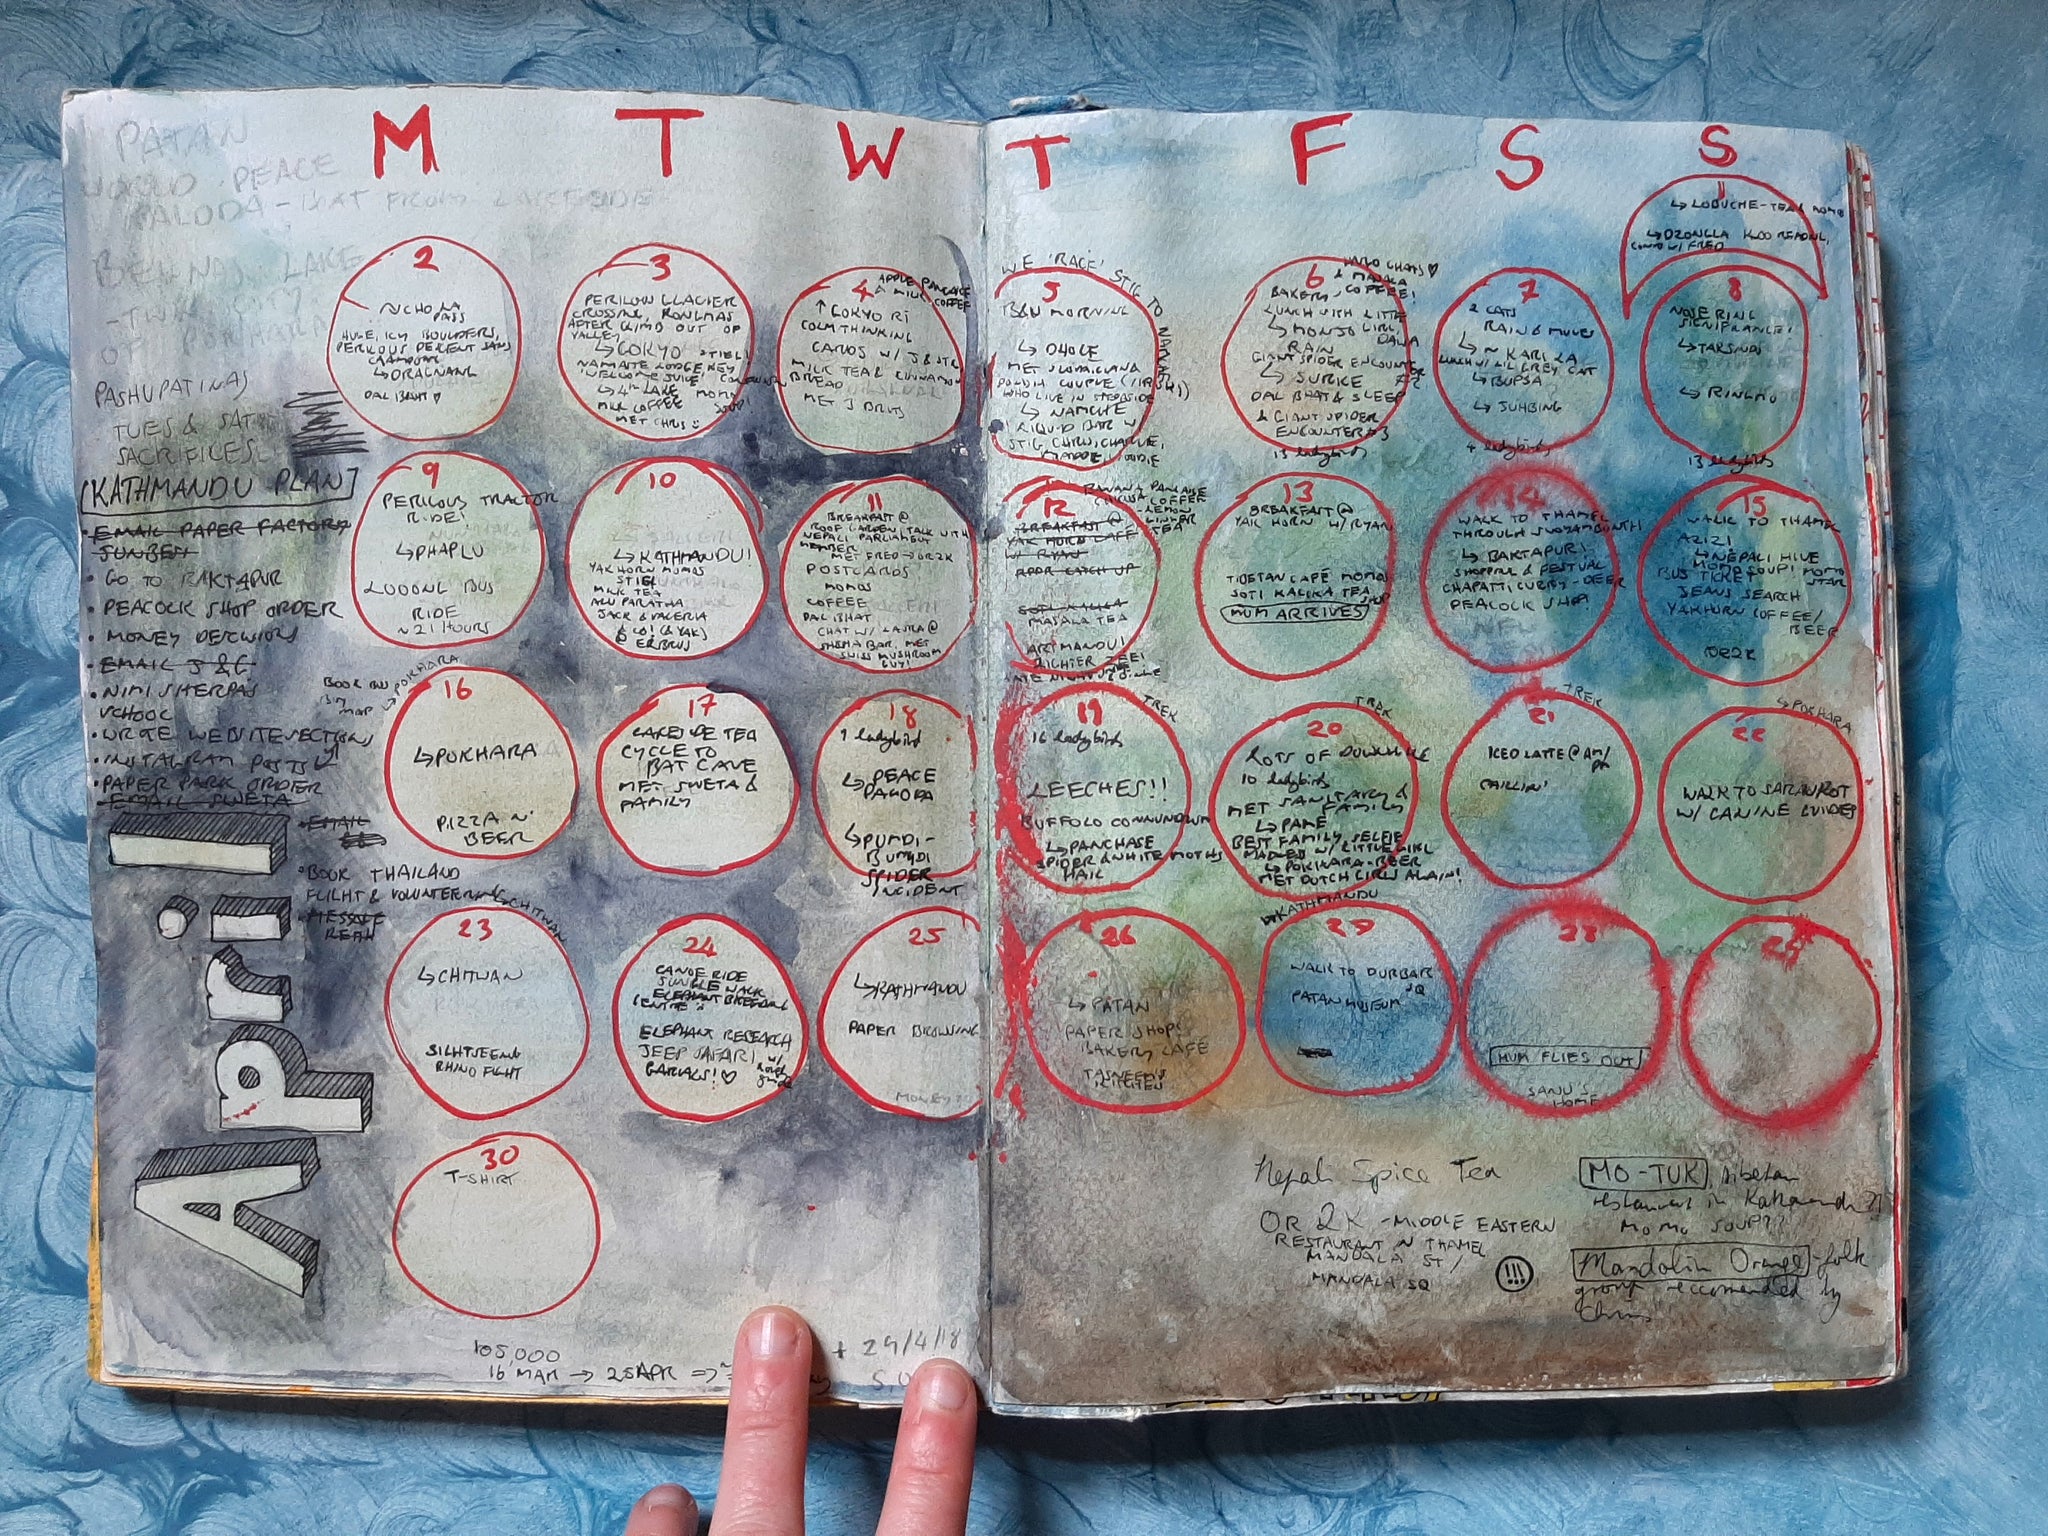 M T W T F S S
PATAN
WORLD PEACE
PAGODA - BOAT FROM LAKESIDE
BEGNAS LAKE
PASHUPATINAS
TUES & SAT
SACRIFICES
[KATHMANDU PLAN]
• EMAIL PAPER FACTORY
• GO TO BAKTAPUR
• PEACOCK SHOP ORDER
• MONEY DECISIONS
• EMAIL J & C
• NIMI SHERPAS
SCHOOL
• WRITE WEBSITE SECTIONS
• INSTAGRAM POSTS
• PAPER PARK ORDER
EMAIL SWETA
• EMAIL
• BOOK THAILAND
FLIGHT & VOLUNTEERING
• MESSAGE
April
1
↳ LOBUCHE - TEA & MOMO
↳ DZONGLA
W/ FRED
2
PASS
HUGE, ICY BOULDERS,
PERILOUS DESCENT SANS
CRAMPONS
↳ DRAGNANG
DAL BHAT ♡
3
PERILOUS GLACIER
CROSSING,
AFTER CLIMB OUT OF
VALLEY
↳ GOKYO
NAMASTE LODGE,
WELCOME JUICE,
↳ 4TH LAKE MOMO
MILK COFFEE SOUP!
MET CHRIS :)
4
APPLE PANCAKE
& MILK COFFEE
↑ GOKYO RI
COLM THINKING
CARDS W/ J &
MILK TEA & CINNAMON
BREAD
MET 3 BRITS
WE 'RACE' STIG TO NAMCHE
5
MORNING
↳ DHOLE
MET
COUPLE
WHO LIVE IN
↳ NAMCHE
LIQUID BAR W
STIG, CHRIS, CHARLIE,
MADDIE,
6
CHATS ♡
& MASALA
BAKERY, COFFEE!
LUNCH WITH LITTLE
↳ MONJO GIRL,
DAWA
RAIN
GIANT SPIDER ENCOUNTER
↳ SURKE
DAL BHAT & SLEEP
& GIANT SPIDER
ENCOUNTER #3
13 ladybirds
7
2 CATS
RAIN & MULES
↳ ~ KARI LA
LUNCH W/ LIL GREY CAT
↳ BUPSA
↳ JUHBING
4 ladybirds
8
NOSE RING
SIGNIFICANCE!
↳ TAKSINDU
↳ RINGMO
13 ladybirds
9
PERILOUS TRACTOR
RIDE!
↳ PHAPLU
LOOONG BUS
RIDE
~21 HOURS
10
↳ KATHMANDU!
YAK HORN MOMOS
STIEL
MILK TEA
ALU PARATHA
JACK & VALERIA
& CO! (& YAK)
@ EREBRUS
11
BREAKFAST @
ROOF GARDEN, TALK WITH
NEPALI PARLIAMENT
MEMBER
MET FRED → OR2K
POSTCARDS
MOMOS
COFFEE
DAL BHAT
CHAT W/ LASTA @
SHISHA BAR, MET
SWISS MUSHROOM
GUY!
12
BANANA PANCAKE
COFFEE
LEMON
GINGER
TEA
BREAKFAST @
YAK HORN CAFÉ
W/ RYAN
CATCH UP
SOTI KALIKA
MASALA TEA
ARTMANDU!
13
BREAKFAST @
YAK HORN W/ RYAN
TIBETAN CAFÉ MOMOS
SOTI KALIKA TEA SHOP
MUM ARRIVES
14
WALK TO THAMEL
THROUGH SWOYAMBUNTH
↳ BAKTAPUR!
SHOPPING & FESTIVAL
CHAPATTI CURRY - BEER
PEACOCK SHOP!
15
WALK TO THAMEL
↳ NEPALI HIVE
MOMO SOUP! MOMO
BUS TICKET STAR
JEANS SEARCH
YAKHORN COFFEE/
BEER
OR2K
BOOK BUS
BUY MAP
↳ POKHARA
16
↳ POKHARA
PIZZA N'
BEER
17
LAKESIDE TEA
CYCLE TO
BAT CAVE
MET SWETA &
FAMILY
18
1 ladybird
↳ PEACE
PAGODA
↳ PUMDI-
BUMDI
SPIDER
INCIDENT
TREK
19
16 ladybirds
LEECHES!!
BUFFOLO CONUNDRUM
↳ PANCHASE
SPIDER & WHITE MOTHS
HAIL
TREK
20
LOTS OF DOWNHILL
10 ladybirds
MET SANITARY &
FAMILY
↳ PAME
BEST FAMILY SELFIE
W/ LITTLE GIRL
↳ POKHARA - BEER
MET DUTCH GIRLS AGAIN!
TREK
21
ICED LATTE @ AM/
PM
CHILLIN'
↳ POKHARA
22
WALK TO SARANKOT
W/ CANINE GUIDES
↳ CHITWAN
23
↳ CHITWAN
SIGHTSEEING
RHINO FIGHT
24
CANOE RIDE
JUNGLE WALK
ELEPHANT BREEDING
CENTRE :(
ELEPHANT RESEARCH
JEEP SAFARI W/
GARIALS! ♡
25
↳ KATHMANDU
PAPER BROWSING
MONEY
26
↳ PATAN
PAPER SHOPS
BAKERY CAFÉ
TASNEEM'S
KITCHEN
↳ KATHMANDU
27
WALK TO DURBAR
SQ
PATAN MUSEUM
28
MUM FLIES OUT
SANU'S
HOME
29
30
T-SHIRT
Nepali Spice Tea
OR 2K - MIDDLE EASTERN
RESTAURANT IN THAMEL
MANDALA ST /
MANDALA SQ
!!!
MO-TUK, tibetan
restaurant in Kathmandu ??
MOMO SOUP??
Mandolin Orange - folk
group reccomended by
Chris
105,000
16 MAR → 25 APR ⇒
+ 29/4/18